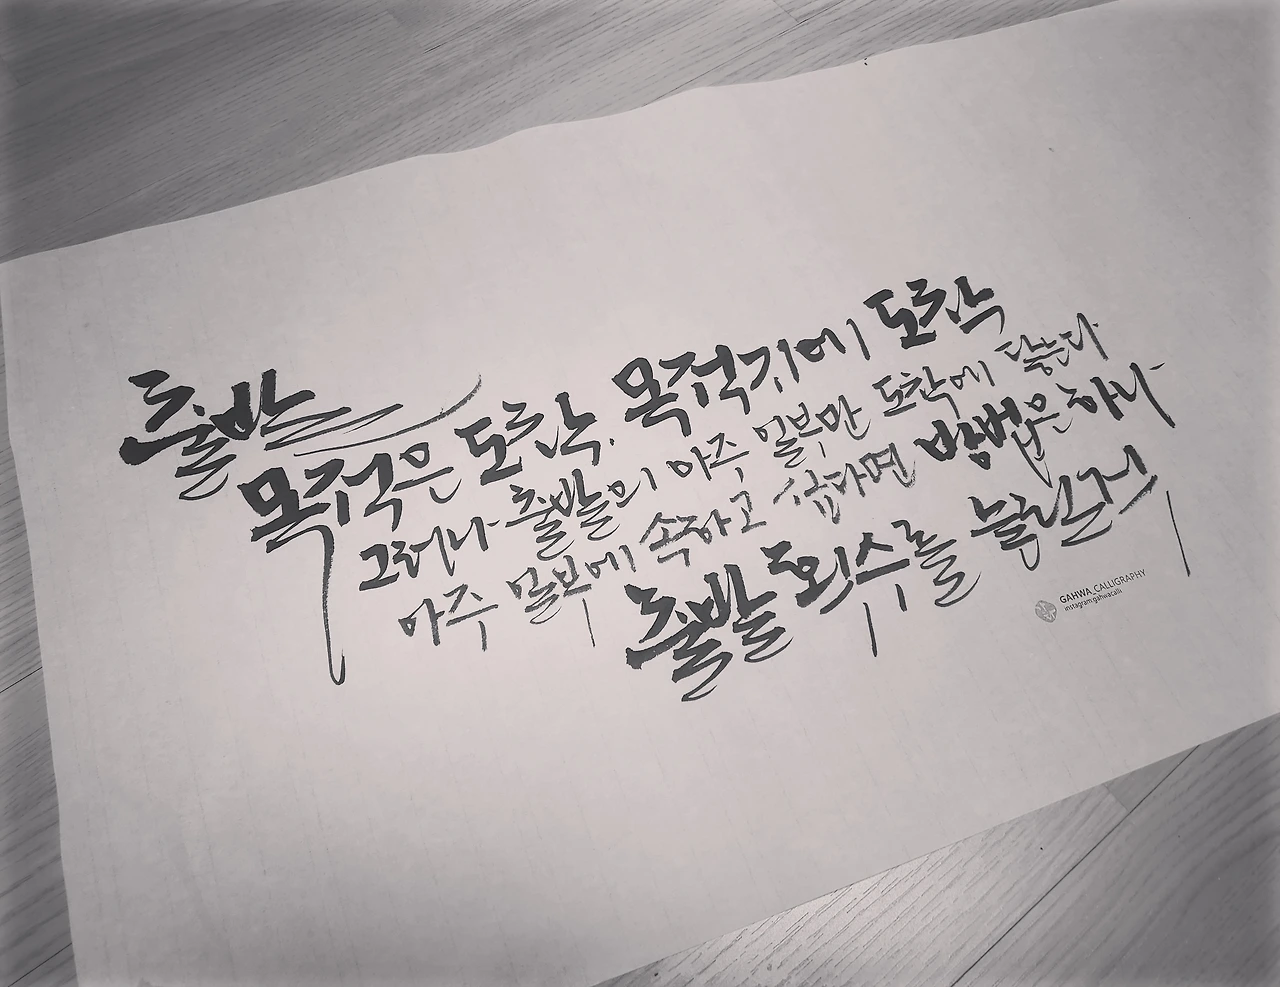 출발
목적은 도착. 목적지에 도착
그러나 출발의 아주 일부만 도착에 닿는다
아주 일부에 속하고 싶다면 방법은 하나
출발 회수를 늘린거
GAHWA_CALLIGRAPHY
instagram:gahwacalli